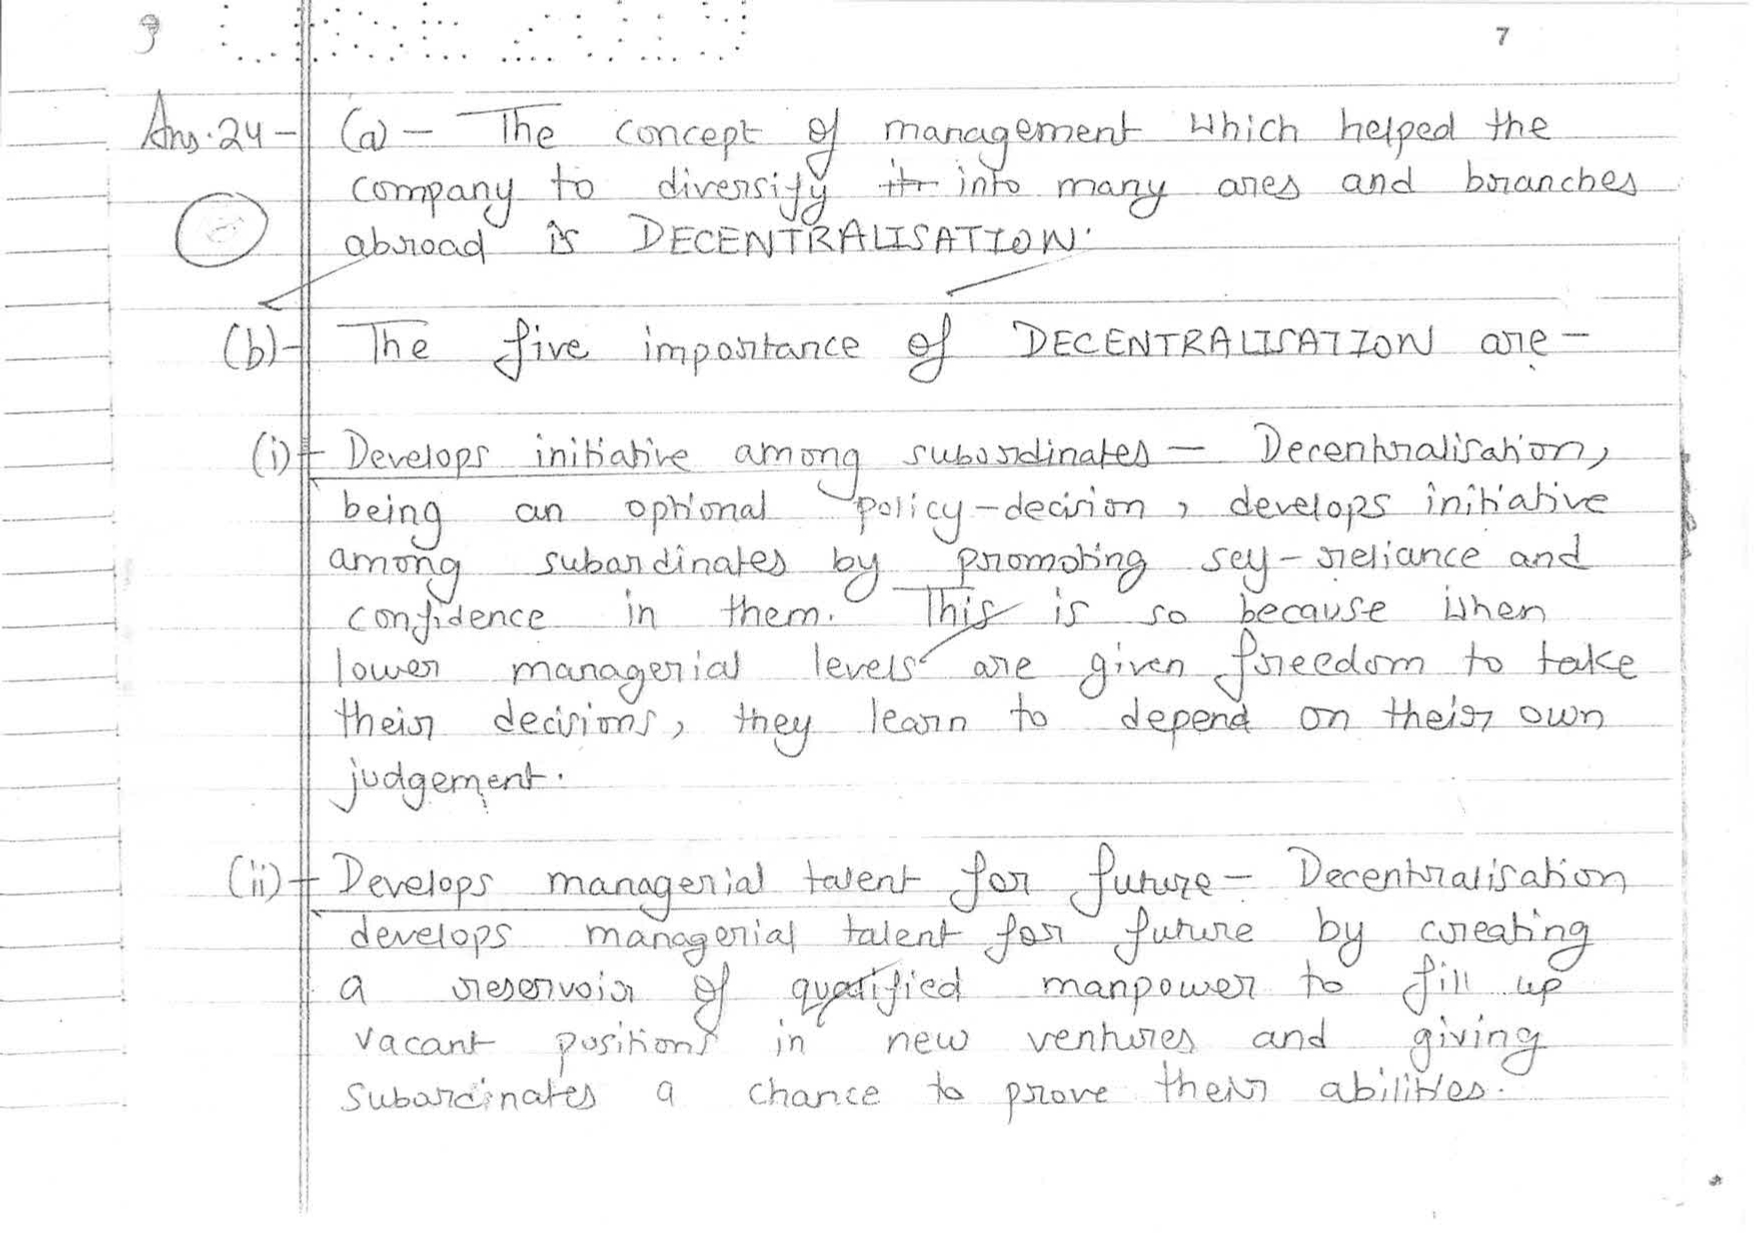 7
Ans.24- (a) - The concept of management which helped the
company to diversify into many ares and branches
abroad is DECENTRALISATION.
(b)- The five importance of DECENTRALISATION are -
(i)- Develops initiative among subordinates - Decentralisation,
being an optional policy-decision, develops initiative
among subordinates by promoting self-reliance and
confidence in them. This is so because when
lower managerial levels are given freedom to take
their decisions, they learn to depend on their own
judgement.
(ii)- Develops managerial talent for future - Decentralisation
develops managerial talent for future by creating
a reservoir of qualified manpower to fill up
vacant positions in new ventures and giving
subordinates a chance to prove their abilities.